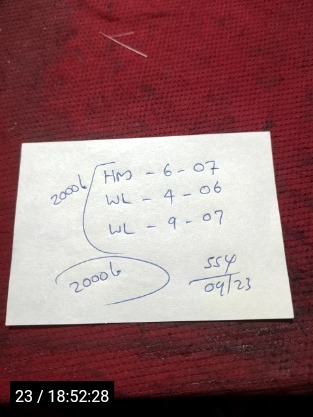 2000/-
HM - 6 - 07
WL - 4 - 06
WL - 9 - 07
2000/-
554
09/23
23 / 18:52:28